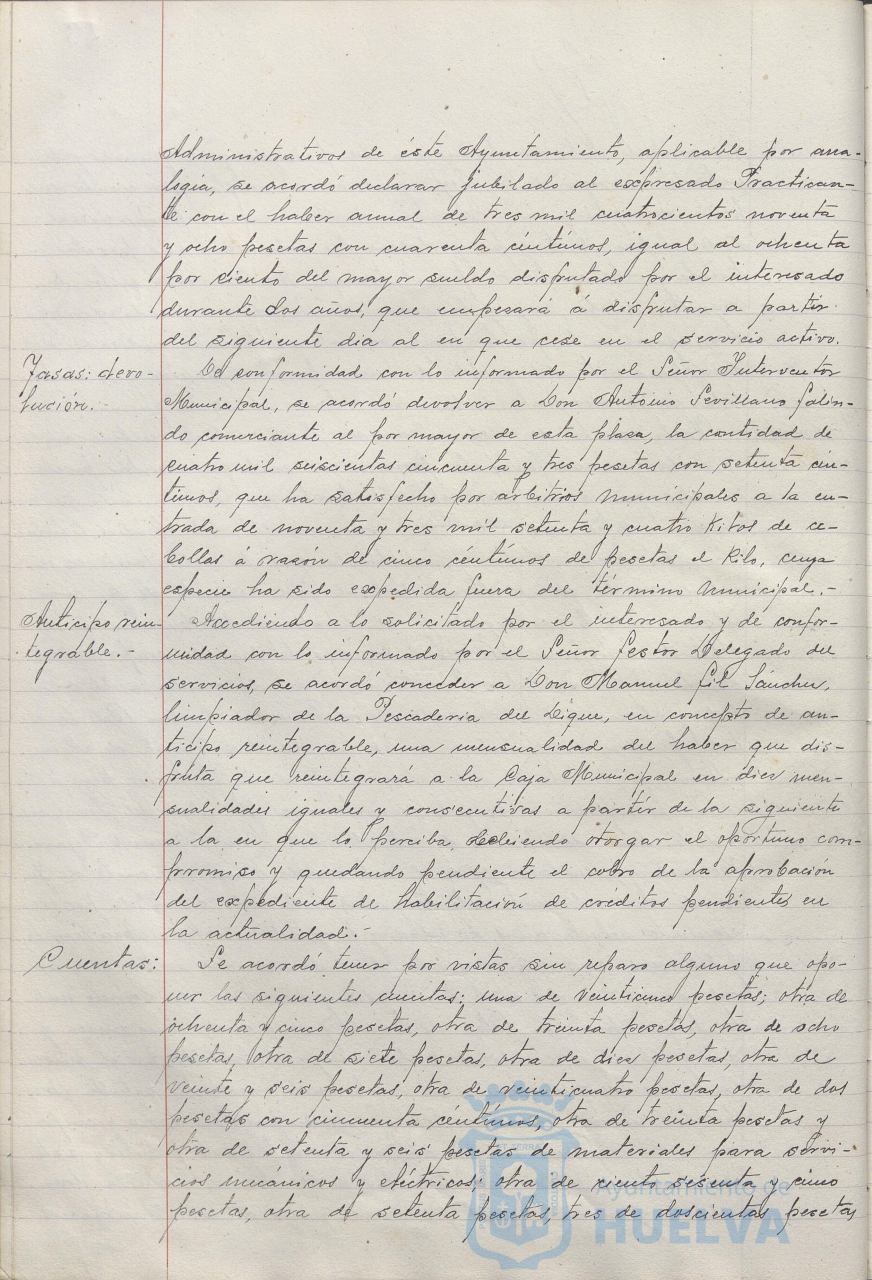 Administrativos de éste Ayuntamiento, aplicable por ana-
logía, se acordó declarar jubilado al expresado Practican-
te con el haber anual de tres mil cuatrocientos noventa
y ocho pesetas con cuarenta céntimos, igual al ochenta
por ciento del mayor sueldo disfrutado por el interesado
durante dos años, que empezará á disfrutar a partir
del siguiente dia al en que cese en el servicio activo.
Tasas: devo-
lución.-
De conformidad con lo informado por el Señor Interventor
Municipal, se acordó devolver a Don Antonio Sevillano Galin-
do comerciante al por mayor de esta plaza, la cantidad de
cuatro mil seiscientas cincuenta y tres pesetas con setenta cén-
timos, que ha satisfecho por arbitrios municipales a la en-
trada de noventa y tres mil setenta y cuatro Kilos de ce-
bollas á razón de cinco céntimos de pesetas el Kilo, cuya
especie ha sido expedida fuera del término municipal.-
Anticipo rein-
tegrable.-
Accediendo a lo solicitado por el interesado y de confor-
midad con lo informado por el Señor Gestor Delegado del
servicios, se acordó conceder a Don Manuel Gil Sánchez,
limpiador de la Pescaderia del Dique, en concepto de an-
ticipo reintegrable, una mensualidad del haber que dis-
fruta que reintegrará a la Caja Municipal en diez men-
sualidades iguales y consecutivas a partir de la siguiente
a la en que lo perciba, debiendo otorgar el oportuno com-
promiso y quedando pendiente el cobro de la aprobación
del expediente de habilitación de créditos pendientes en
la actualidad.-
Cuentas:
Se acordó tener por vistas sin reparo alguno que opo-
ner las siguientes cuentas: una de veinticinco pesetas; otra de
ochenta y cinco pesetas, otra de treinta pesetas, otra de ocho
pesetas, otra de siete pesetas, otra de diez pesetas, otra de
veinte y seis pesetas, otra de veinticuatro pesetas, otra de dos
pesetas con cincuenta céntimos, otra de treinta pesetas y
otra de setenta y seis pesetas de materiales para servi-
cios mecánicos y eléctricos; otra de ciento sesenta y cinco
pesetas, otra de setenta pesetas, tres de doscientas pesetas
Ayuntamiento de
HUELVA